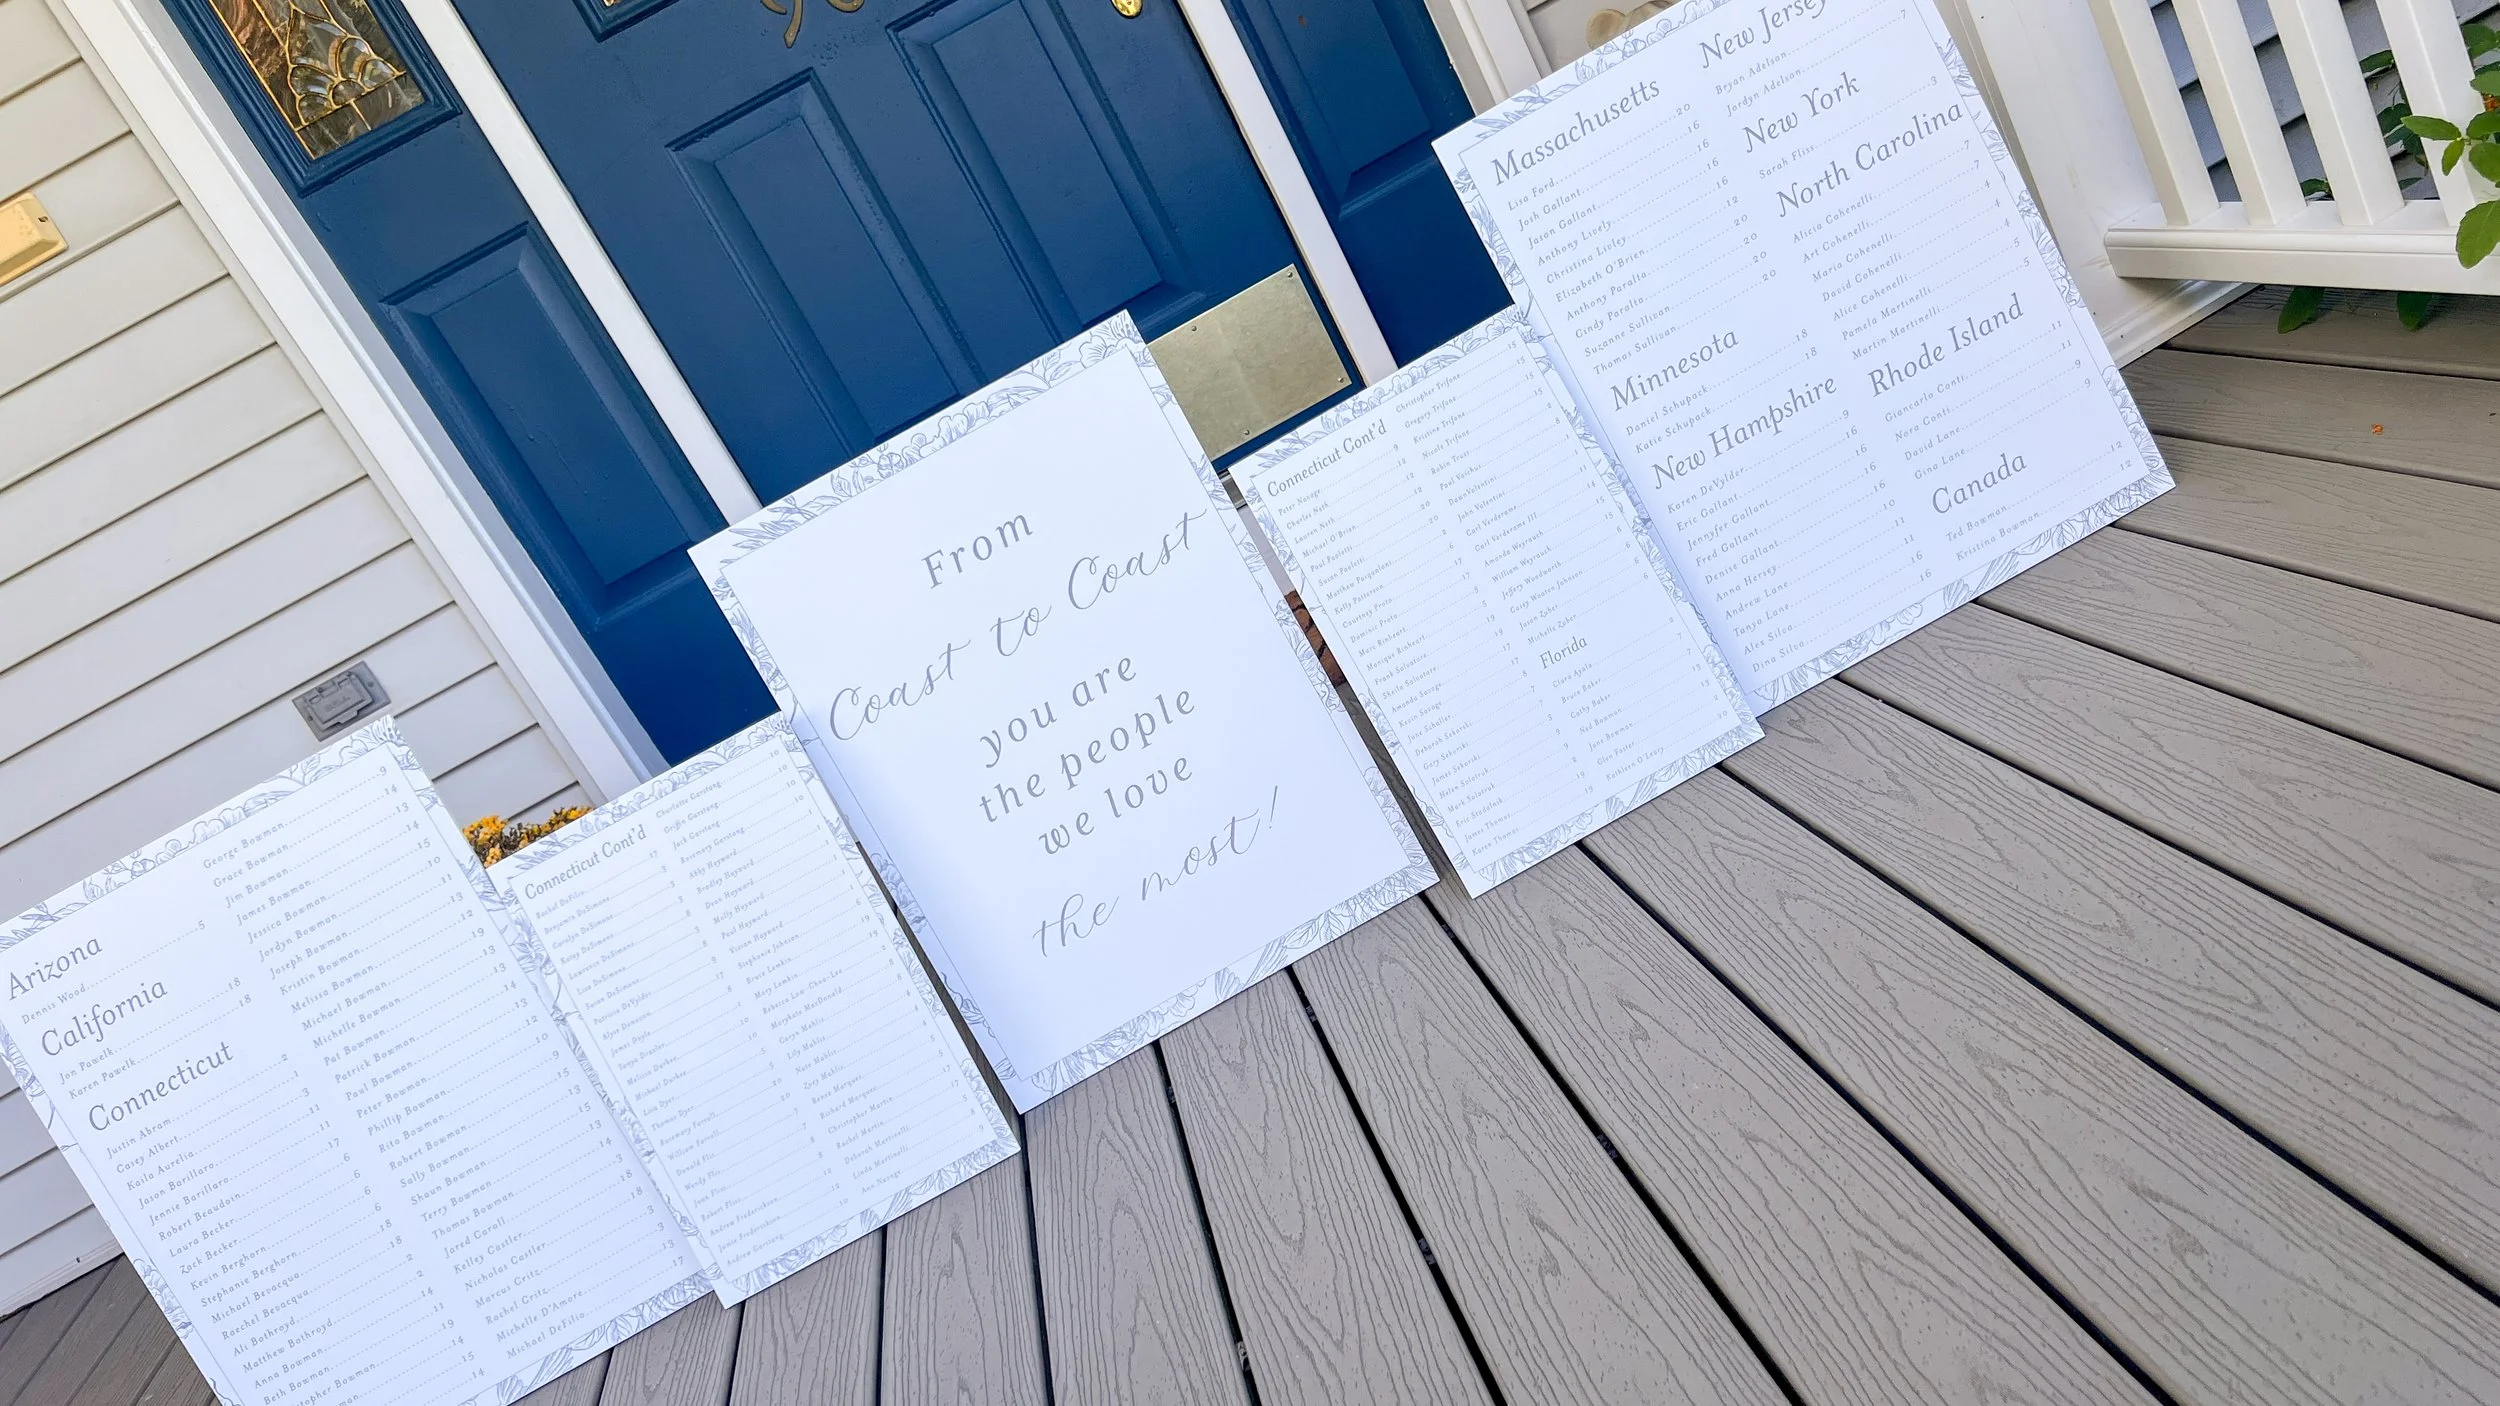 Arizona
Dennis Wood 5
California
Jon Pawelk 18
Karen Pawelk 18
Connecticut
Justin Abram 2
Casey Albert 1
Kaila Aurelia 3
Jason Barillaro 11
Jennie Barillaro 11
Robert Beaudoin 17
Laura Becker 6
Zack Becker 6
Kevin Berghorn 6
Stephanie Berghorn 6
Michael Bevacqua 18
Raechel Bevacqua 18
Ali Bothroyd 2
Matthew Bothroyd 2
Anna Bowman
Beth Bowman
Bowman
George Bowman 9
Grace Bowman 14
Jim Bowman 13
James Bowman 14
Jessica Bowman 15
Jordyn Bowman 10
Joseph Bowman 11
Kristin Bowman 13
Melissa Bowman 12
Michael Bowman 19
Michelle Bowman 13
Pat Bowman
Patrick Bowman
Paul Bowman
Peter Bowman
Phillip Bowman
Rita Bowman
Robert Bowman
Sally Bowman
Shaun Bowman
Terry Bowman
Thomas Bowman
Jared Carall
Kelley Castler
Nicholas Castler
Marcus Critz
Rachel Critz
Michelle D'Amore
Michael DeFilio
Connecticut Cont'd
Rachel DeFilio 17
Benjamin DeSimone 3
Carolyn DeSimone 3
Katey DeSimone
Lawrence DeSimone
Lisa DeSimone
Susan DeSimone
Patricia DeVylder
James Doyle
Tanya Drexler
Melissa Durkee
Michael Durkee
Lisa Dyer
Thomas Dyer
Rosemary Farrell
William Farrell
Donald Flis
Wendy Flis
Joan Fliss
Robert Fliss
Andrew Frederickson
Jamie Frederickson
Andrew Gerstung
Charlotte Gerstung 10
Griffin Gerstung 10
Jack Gerstung 10
Rosemary Gerstung 10
Abby Hayward
Bradley Hayward
Dean Hayward
Molly Hayward
Paul Hayward
Vivian Hayward
Stephanie Johnson
Bruce Lemkin
Mary Lemkin
Rebecca Low-Choa-Lee
Marykate MacDonald
Caryn Mahlis
Lily Mahlis
Nate Mahlis
Zoey Mahlis
Renee Marques
Richard Marques
Christopher Martin
Rachel Martin
Deborah Martinelli
Linda Martinelli
Ann Navage
From
Coast to Coast
you are
the people
we love
the most!
Connecticut Cont'd
Peter Navage 9
Charles Neth 12
Lauren Neth 12
Michael O'Brien 12
Paul Paoletti 20
Susan Paoletti 20
Matthew Pasqualoni
Kelly Patterson
Courtney Proto
Dominic Proto
Marc Rinheart
Monique Rinheart
Frank Salvatore
Sheila Salvatore
Amanda Savage
Kevin Savage
June Schaller
Deborah Sekorski
Gary Sekorski
James Sekorski
Helen Solotruk
Mark Solotruk
James Thomas
Karen Thomas
Christopher Trifone 15
Gregory Trifone 15
Kristine Trifone 15
Nicole Trifone 15
Robin Trust
Paul Vaichus
Dawn Valentini
John Valentini
Carl Verderame
Carl Verderame III
Amanda Weyrauch
William Weyrauch
Jeffery Woodworth
Casey Wooten Johnson
Jason Zuber
Michelle Zuber
Florida
Clara Ayala
Bruce Baker
Cathy Baker
Ned Bowman
Jane Bowman
Glen Foster
Kathleen O'Leary 20
Massachusetts
Lisa Ford 20
Josh Gallant 16
Jason Gallant 16
Anthony Lively 16
Christina Livley 16
Elizabeth O'Brien 12
Anthony Paralta 20
Cindy Paralta 20
Suzanne Sullivan 20
Thomas Sullivan 20
Minnesota
Daniel Schupack 18
Katie Schupack 18
New Hampshire
Karen DeVylder 9
Eric Gallant 16
Jennyfer Gallant 16
Fred Gallant 16
Denise Gallant 16
Anna Hersey 10
Andrew Lane 11
Tanya Lane 11
Alex Silva 16
Dina Silva 16
New Jersey
Bryan Adelson 7
Jordyn Adelson
New York
Sarah Fliss 3
North Carolina
Alicia Cohenelli 7
Art Cohenelli 7
Maria Cohenelli 4
David Cohenelli 4
Alice Cohenelli 4
Pamela Martinelli 5
Martin Martinelli 5
Rhode Island
Giancarlo Conti 11
Nora Conti 11
David Lane 9
Gina Lane 9
Canada
Ted Bowman 12
Kristina Bowman 12